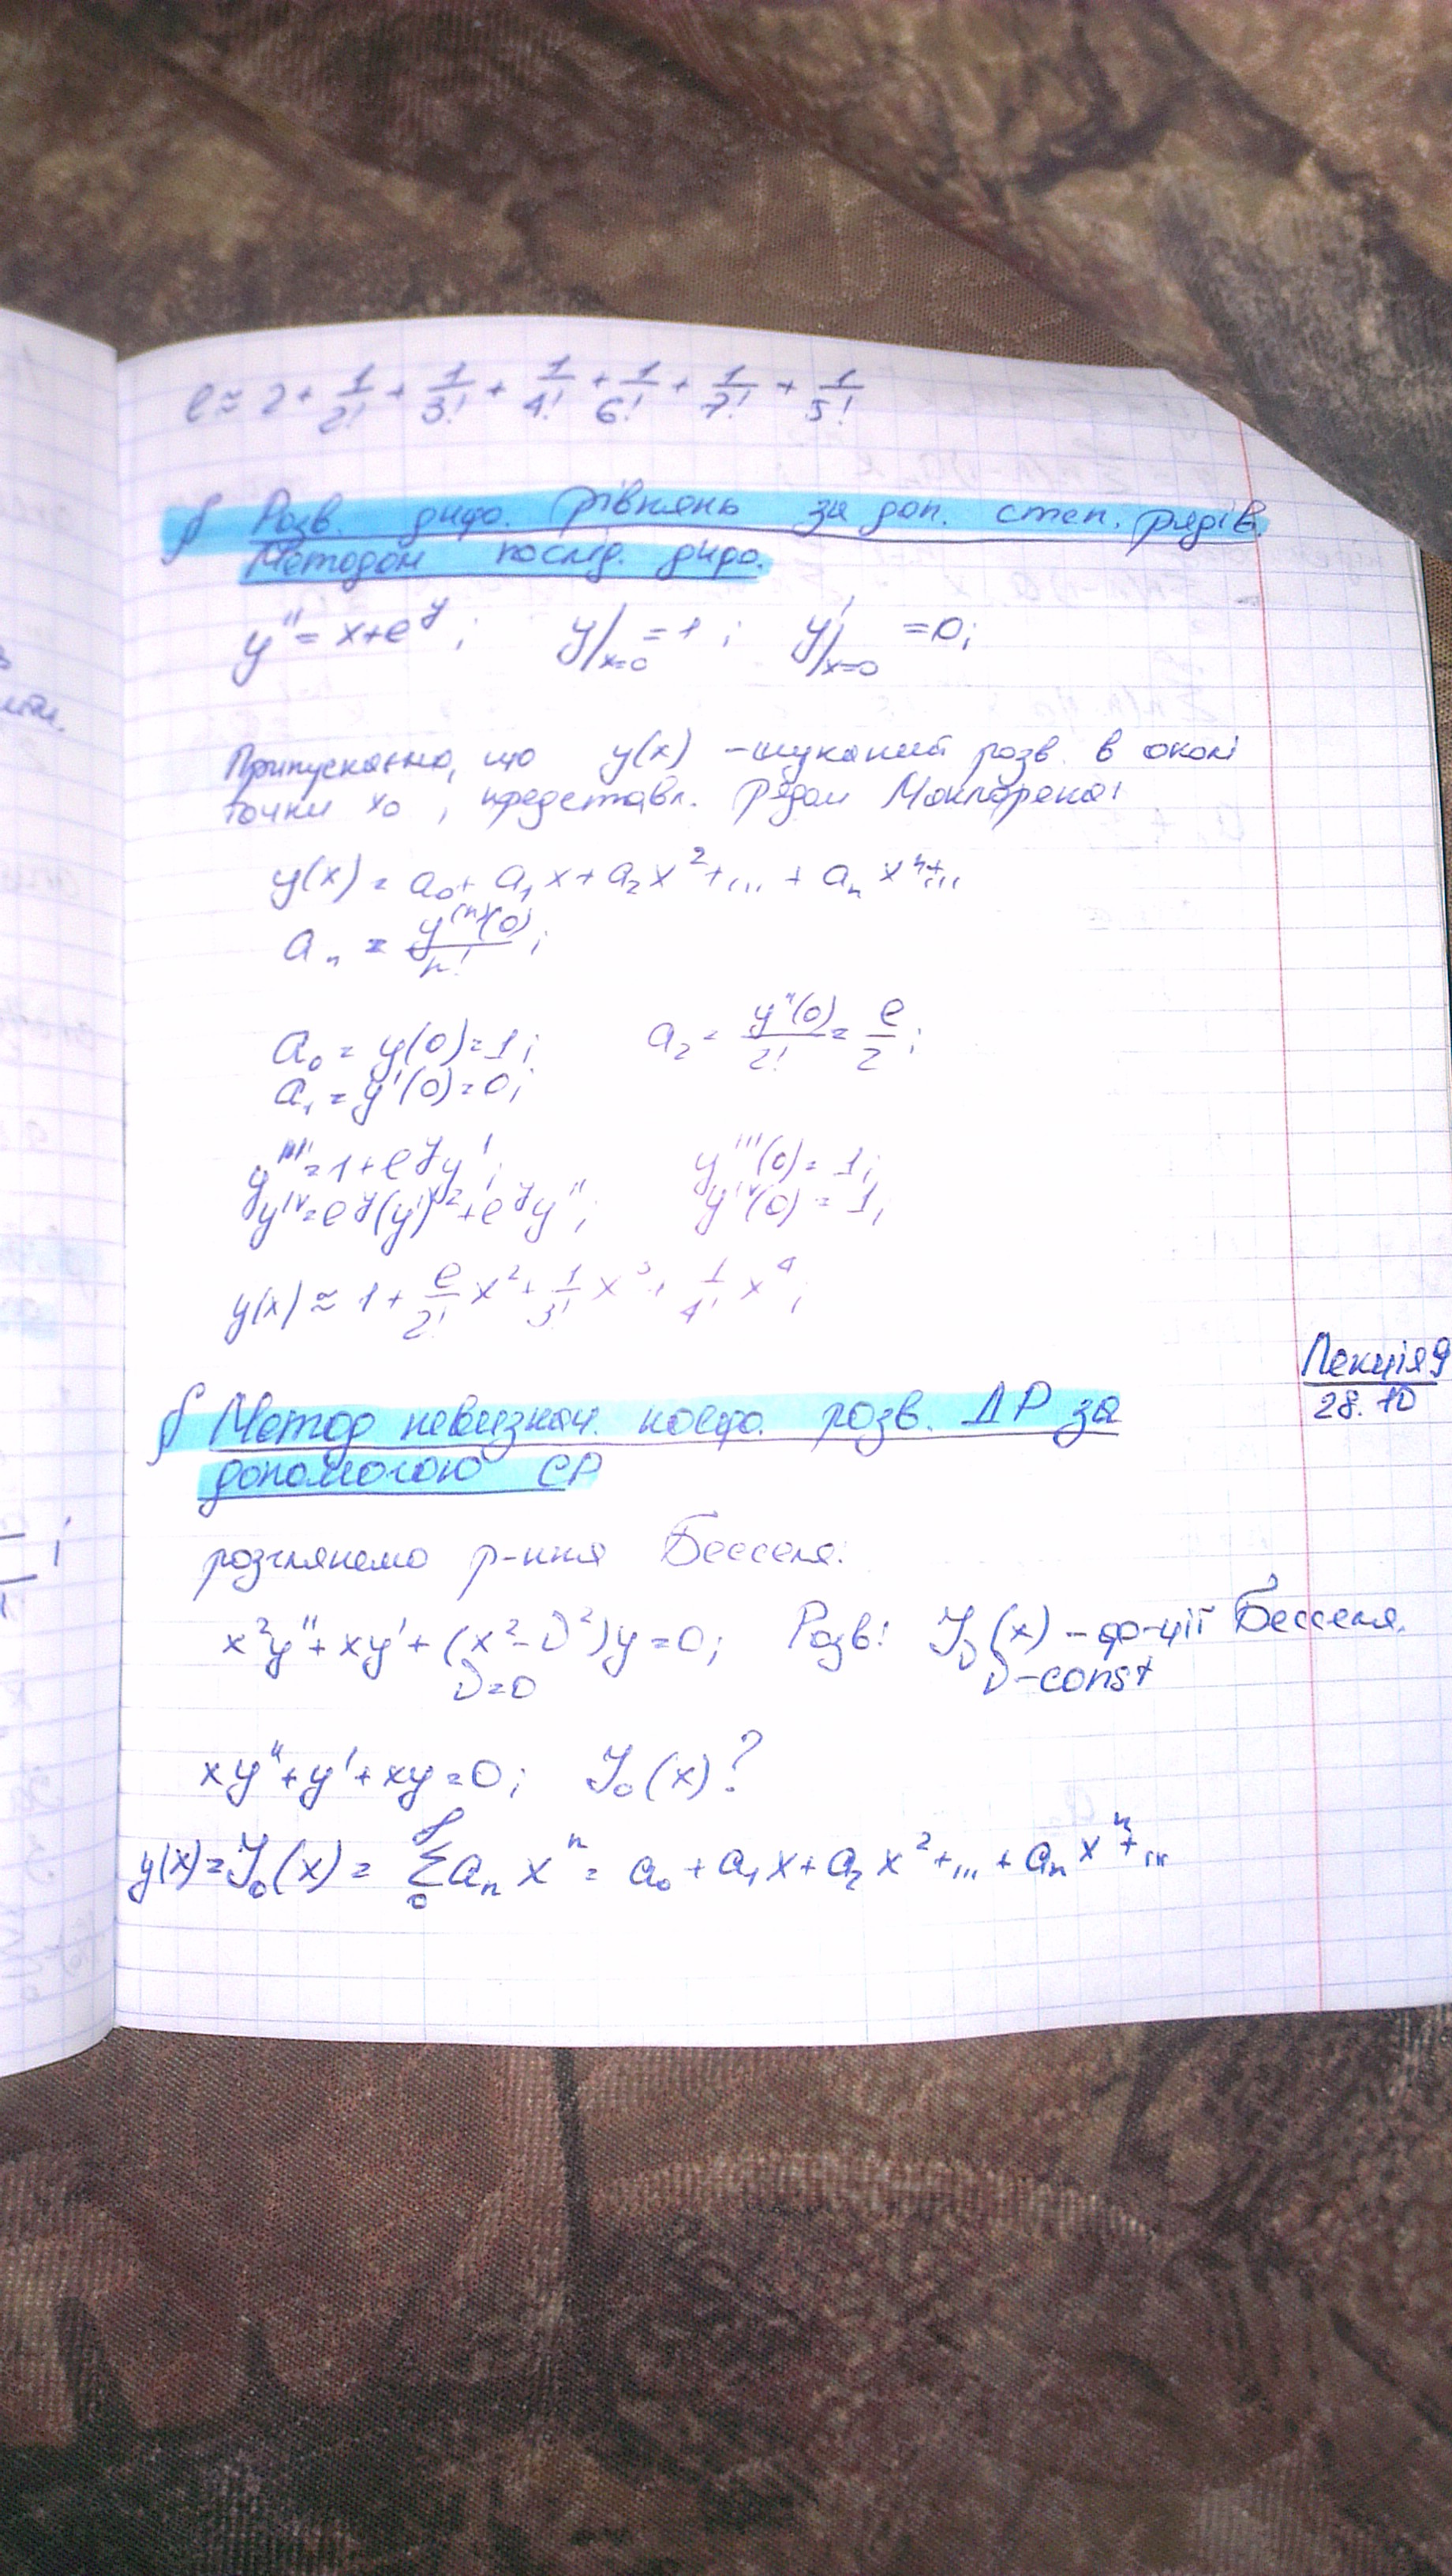 e ≈ 2 + 1/2! + 1/3! + 1/4! + 1/6! + 1/7! + 1/5!
§ Розв. диф. рівнянь за доп. степ. рядів.
Методом послід. диф.
y'' = x+e^y ; y|x=0 = 1 ; y'|x=0 = 0;
Припускаємо, що y(x) – шуканий розв. в околі
точки x₀ , представл. рядом Маклорена:
y(x) = a₀ + a₁x + a₂x² + ... + aₙxⁿ + ...
aₙ = y⁽ⁿ⁾(0)/n! ;
a₀ = y(0) = 1; a₂ = y''(0)/2! = e/2 ;
a₁ = y'(0) = 0;
y''' = 1 + e^y y' ; y'''(0) = 1;
y^IV = e^y (y')² + e^y y'' ; y^IV(0) = 1;
y(x) ≈ 1 + e/2! x² + 1/3! x³ + 1/4! x⁴ ;
Лекція 9
28.10
§ Метод невизнач. коеф. розв. ДР за
допомогою СР
розглянемо р-ння Бесселя:
x²y'' + xy' + (x² - ν²)y = 0; Розв: J_ν(x) – ф-ції Бесселя.
ν = 0 ν – const
xy'' + y' + xy = 0; J₀(x)?
y(x) = J₀(x) = ∑₀^∞ aₙxⁿ = a₀ + a₁x + a₂x² + ... + aₙxⁿ + ...